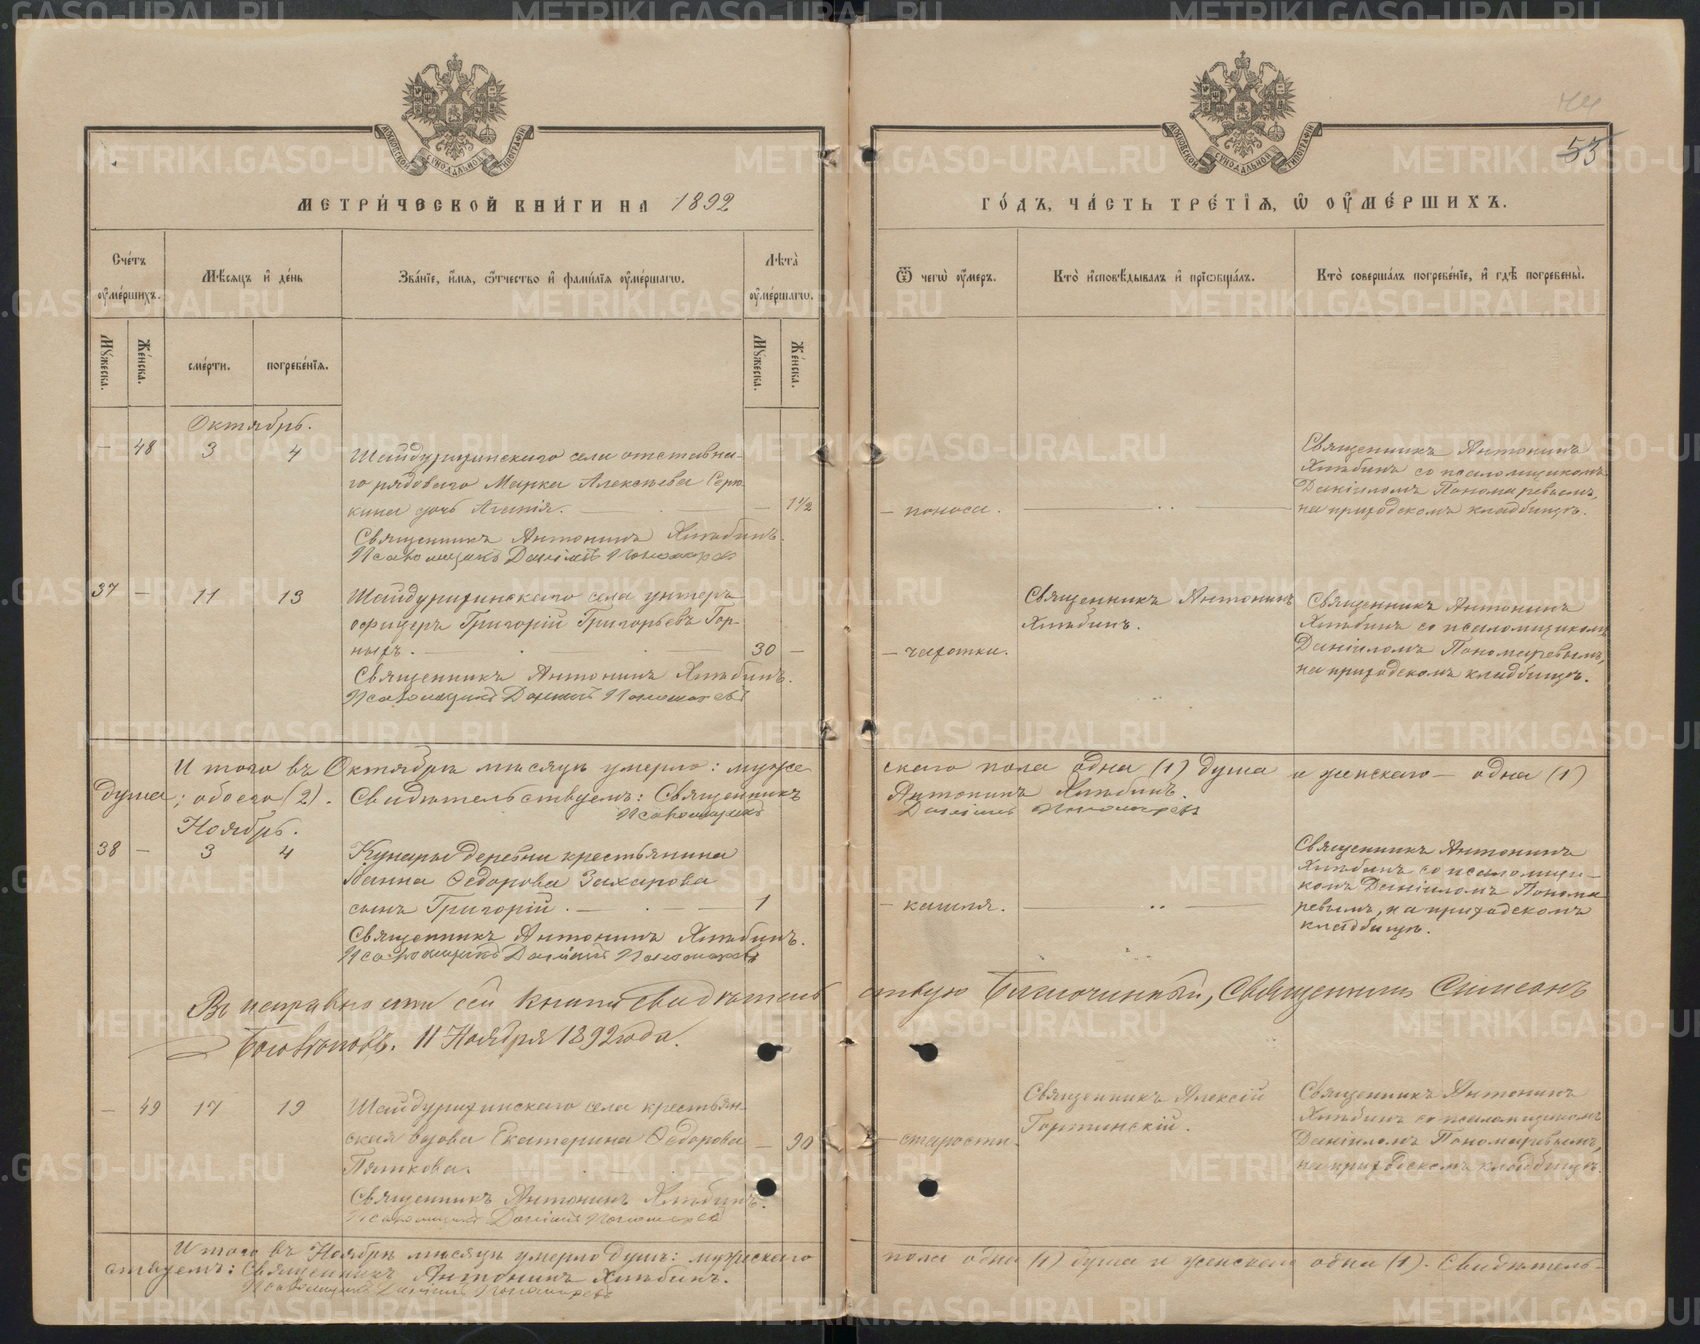 МЕТРИ́ЧЕСКОЙ КНИ́ГИ НА 1892
ГО́ДЪ, ЧА́СТЬ ТРЕ́ТІѦ, Ѡ ОУ҆МЕ́РШИХЪ.
44
55
Сче́тъ оу҆ме́ршихъ.
Мѣ́сяцъ и҆ де́нь
Зва́нїе, и҆́мя, ѻ҆́тчество и҆ фами́лїя оу҆ме́ршагѡ.
Лѣ́та оу҆ме́ршагѡ.
Ѿ чегѡ̀ оу҆́меръ.
Кто̀ и҆сповѣ́дывалъ и҆ прїѡбща́лъ.
Кто̀ соверша́лъ погребе́нїе, и҆ гдѣ̀ погребены̀.
Му́жеска.
Же́нска.
сме́рти.
погребе́нїя.
Му́жеска.
Же́нска.
Октябрь.
— 48 3 4
Шайдурихинскаго села отставна-
го рядоваго Марка Алексѣева Серю
кина дочь Агапія. — 1½
Священникъ Антонинъ Хлѣбинъ.
Псаломщикъ Даніилъ Пономаревъ
— поноса.
Священникъ Антонинъ
Хлѣбинъ со псаломщикомъ
Даніиломъ Пономаревымъ,
на приходскомъ кладбищѣ.
37 — 11 13
Шайдурихинскаго села унтеръ
офицеръ Григорій Григорьевъ Гор-
ныхъ. — 30 —
Священникъ Антонинъ Хлѣбинъ.
Псаломщикъ Даніилъ Пономаревъ
— чахотки.
Священникъ Антонинъ
Хлѣбинъ.
Священникъ Антонинъ
Хлѣбинъ со псаломщикомъ
Даніиломъ Пономаревымъ,
на приходскомъ кладбищѣ.
Итого въ Октябрѣ мѣсяцѣ умерло: муже
скаго пола одна (1) душа и женскаго — одна (1)
душа; обоего (2). Свидѣтельствуемъ: Священникъ
Антонинъ Хлѣбинъ.
Псаломщикъ
Даніилъ Пономаревъ
Ноябрь.
38 — 3 4
Кунары деревни крестьянина
Іоанна Ѳедорова Захарова
сынъ Григорій. — 1
Священникъ Антонинъ Хлѣбинъ.
Псаломщикъ Даніилъ Пономаревъ
— кашля.
Священникъ Антонинъ
Хлѣбинъ со псаломщи-
комъ Даніиломъ Понома
ревымъ, на приходскомъ
кладбищѣ.
Въ исправности сей книги свидѣтель
ствую Благочинный, Священникъ Симеонъ
11 Ноября 1892 года.
— 49 17 19
Шайдурихинскаго села крестьян-
ская вдова Екатерина Ѳедорова — 90
Пяткова.
Священникъ Антонинъ Хлѣбинъ.
Псаломщикъ Даніилъ Пономаревъ
— старости.
Священникъ Алексій
Священникъ Антонинъ
Хлѣбинъ со псаломщикомъ
Даніиломъ Пономаревымъ,
на приходскомъ кладбищѣ.
Итого въ Ноябрѣ мѣсяцѣ умерло душъ: мужескаго
пола одна (1) душа и женскаго одна (1). Свидѣтель-
ствуемъ: Священникъ Антонинъ Хлѣбинъ.
Псаломщикъ Даніилъ Пономаревъ